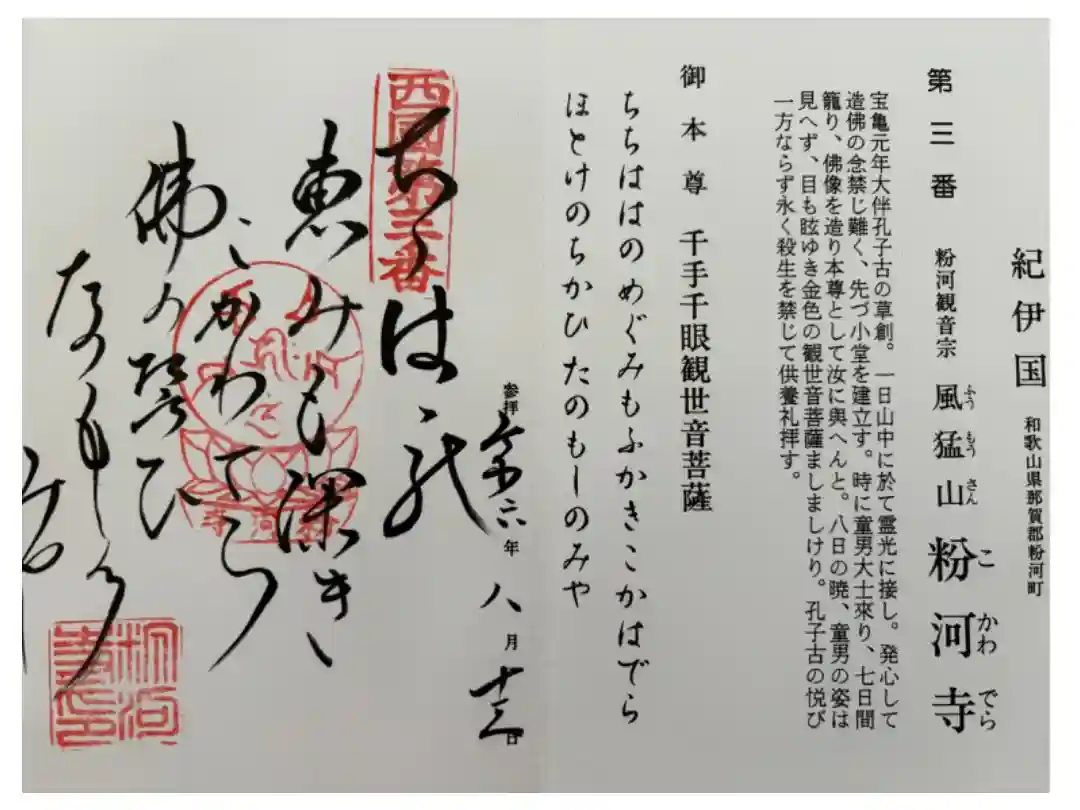 紀伊国 和歌山県那賀郡粉河町
第三番 粉河観音宗 風猛山 粉河寺
ふうもうさん こかわでら
宝亀元年大伴孔子古の草創。一日山中に於て霊光に接し。発心して
造佛の念禁じ難く、先づ小堂を建立す。時に童男大士來り、七日間
籠り、佛像を造り本尊として汝に與へんと。八日の暁、童男の姿は
見へず、目も眩ゆき金色の観世音菩薩ましましけり。孔子古の悦び
一方ならず永く殺生を禁じて供養礼拝す。
御本尊 千手千眼観世音菩薩
ちちははのめぐみもふかきこかはでら
ほとけのちかひたのもしのみや
参拝 六年 八月十三日
西國第三番
ちゝはゝの
恵みも深き
こかわてら
佛の誓ひ
たのもしの
粉河寺